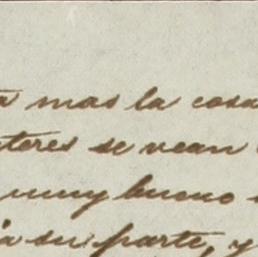 mas la cosa
se vean
muy bueno
a su parte, y